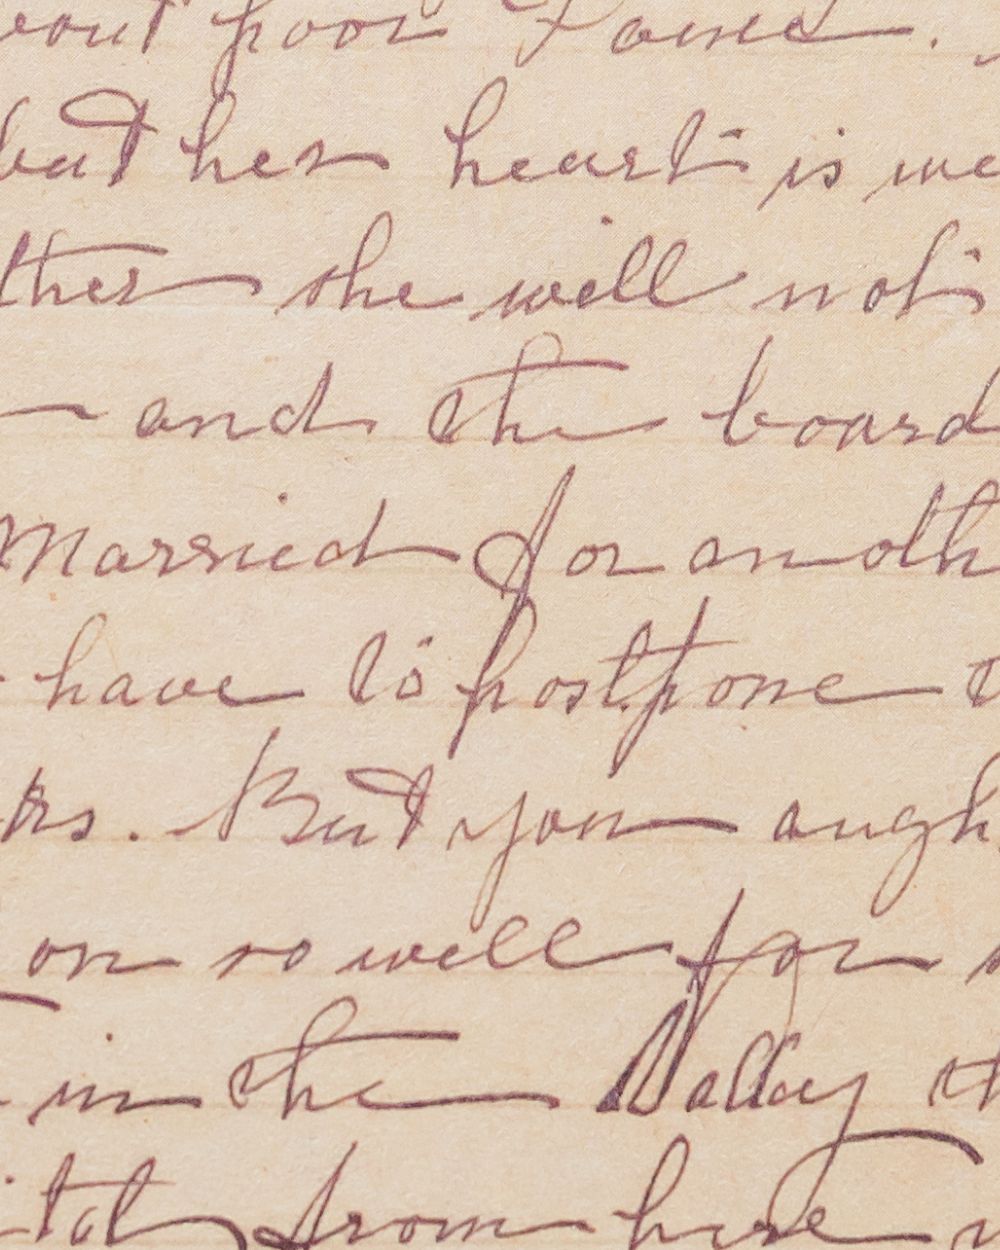 bout poor
but her heart is we
ther she will not
and the board
Married for anoth
have to postpone
rs. But you augh
on so well for
in the Valley th
from here